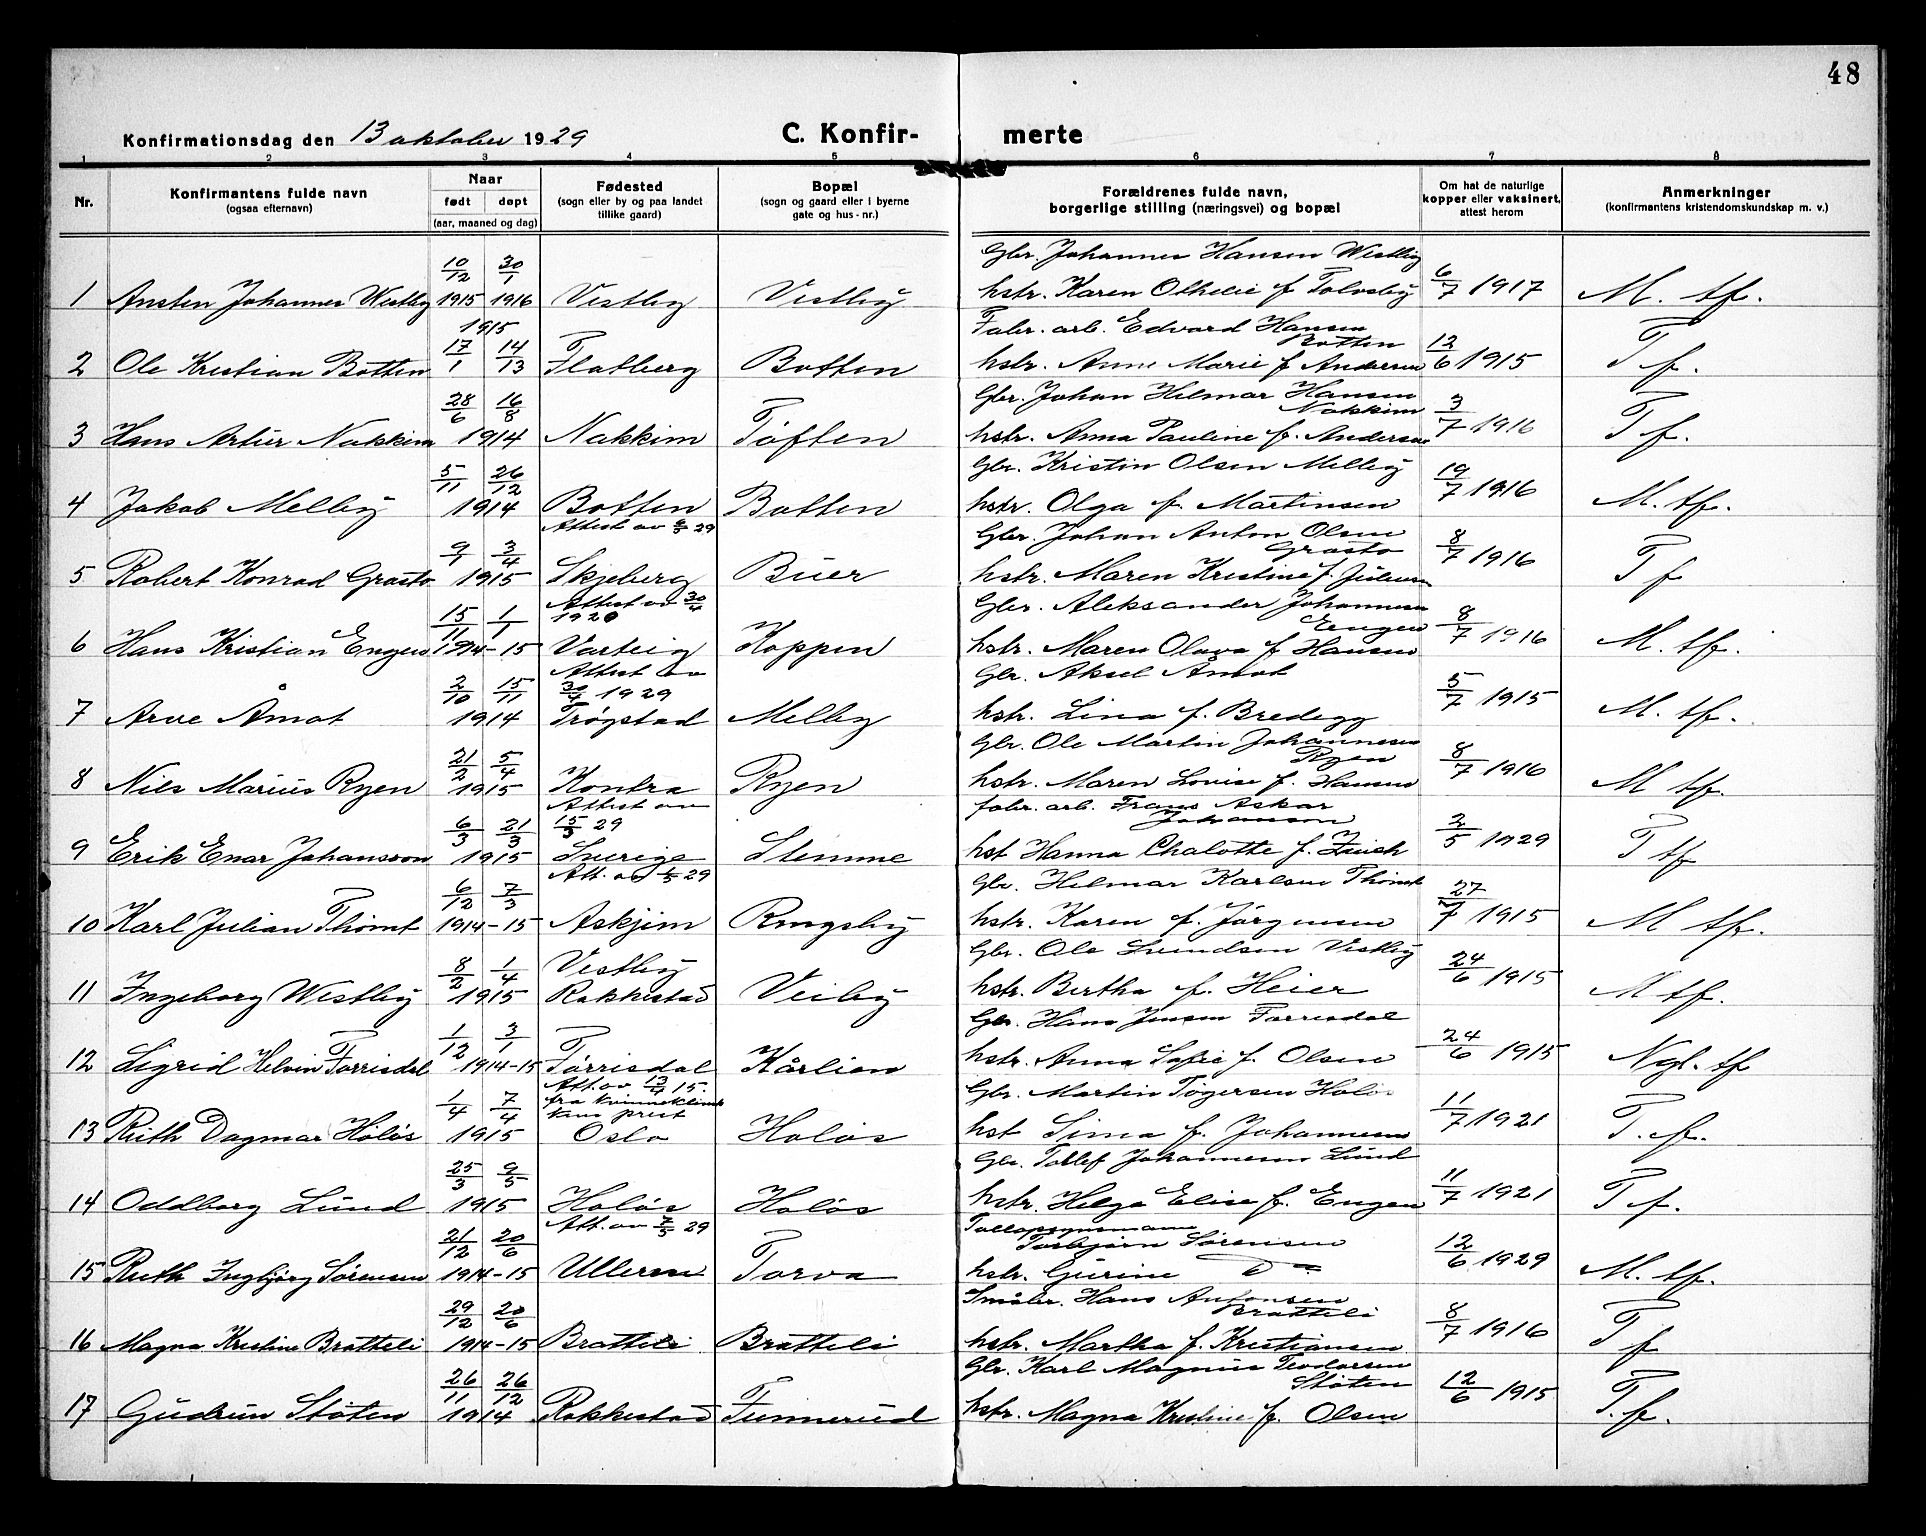 48
Konfirmationsdag den 13 oktober 1929
C. Konfir- merte
1 2 3 4 5 6 7 8
Nr.
Konfirmantens fulde navn
(ogsaa efternavn)
Naar
født døpt
(aar, maaned og dag)
Fødested
(sogn eller by og paa landet
tillike gaard)
Bopæl
(sogn og gaard eller i byerne
gate og hus-nr.)
Forældrenes fulde navn,
borgerlige stilling (næringsvei) og bopæl
Om hat de naturlige
kopper eller vaksinert,
attest herom
Anmerkninger
(konfirmantens kristendomskundskap m. v.)
10/12 30/1 Gbr. Johannes Hansen Westby
1 Ansten Johannes Westby 1915 1916 Vestby Vestby hstr. Karen Othelie f. 6/7 1917 M. tf.
1915 Fabr. arb. Edvard Hansen
17/1 14/13 Botten
2 Ole Kristian Botten Flatberg Botten hstr. Anne Marie f. Andersen 12/6 1915 T f.
28/6 16/8 Gbr. Johan Helmar Hansen
Nakkim
3 Hans Artur Nakkim 1914 Nakkim Tøften hstr. Anna Pauline f. Andersen 3/7 1916 T f.
5/11 26/12 Gbr. Kristin Olsen Melby
4 Jakob Melby 1914 Botten Botten hstr. Olga f. Martinsen 19/7 1916 M. tf.
9/1 3/4 Attest av 29 Gbr. Johan Anton Olsen
Grasto
5 Robert Konrad Grasto 1915 Skjeberg Buer hstr. Maren Kristine f. Juliusen 8/7 1916 T f
15/11 1/1 Attest av 30/4 Gbr. Aleksander Johannesen
1920 Engen
6 Hans Kristian Engen 1914-15 Varteig Koppen hstr. Maren Olava f. Hansen 8/7 1916 M. tf.
2/10 15/11 Attest av Gbr. Aksel Åmot
30/4 1929
7 Arve Åmot 1914 Trøgstad Melby hstr. Lina f. Bredegg 5/7 1915 M. tf.
21/2 5/4 Gbr. Ole Martin Johannesen
Ryen
8 Nils Marius Ryen 1915 Kontra Ryen hstr. Maren Lovise f. Hansen 8/7 1916 M tf.
6/3 21/3 Attest av fabr. arb. Frans Askar
15/3 29 Johanson
9 Erik Enar Johansson 1915 Sverige Stemme hst Hanna Chalotte f. 2/5 1929 T tf
6/12 7/3 Att. av 29 Gbr. Helmar Karlsen Thømt
10 Karl Julian Thømt 1914-15 Askjim Ringsby hstr. Karen f. Jørgensen 27/7 1915 M tf.
8/2 1/4 Vestby Gbr. Ole Svendsen Vestby
11 Ingeborg Westby 1915 Rakkestad Veiby hstr. Bertha f. Heier 24/6 1915 M tf.
1/12 3/1 Gbr. Hans Jensen Tørrisdal
12 Sigrid Helvin Tørrisdal 1914-15 Tørrisdal Kårlien hstr. Anna Sofie f. Olsen 24/6 1915 Ngl. tf
1/4 7/4 Att. av 13/4 15. Gbr. Martin Tøgersen Holøs
fra kvinneklinik
kens prest
13 Ruth Dagmar Holøs 1915 Oslo Holøs hst Sina f. Johannesen 11/7 1921 T. f.
25/3 9/5 Gbr. Torlef Johannesen Lund
14 Oddborg Lund 1915 Holøs Holøs hstr. Helga Elise f. Engen 11/7 1921 T f.
21/12 20/6 Att. av 7/5 29 Tollopsynsmann
Torbjørn Sørensen
15 Ruth Ingbjørg Sørensen 1914-15 Ullern Torva hstr. Gurine Do 12/6 1929 M. tf.
29/12 20/6 Småbr. Hans Antonsen
Bratteli
16 Magna Kristine Bratteli 1914-15 Bratteli Bratteli hstr. Martha f. Kristiansen 8/7 1916 T f
26/11 26/12 Gbr. Karl Magnus Teodorsen
Støten
17 Gudrun Støten 1914 Rakkestad Tunnerud hstr. Magna Kristine f. Olsen 12/6 1915 T. f.